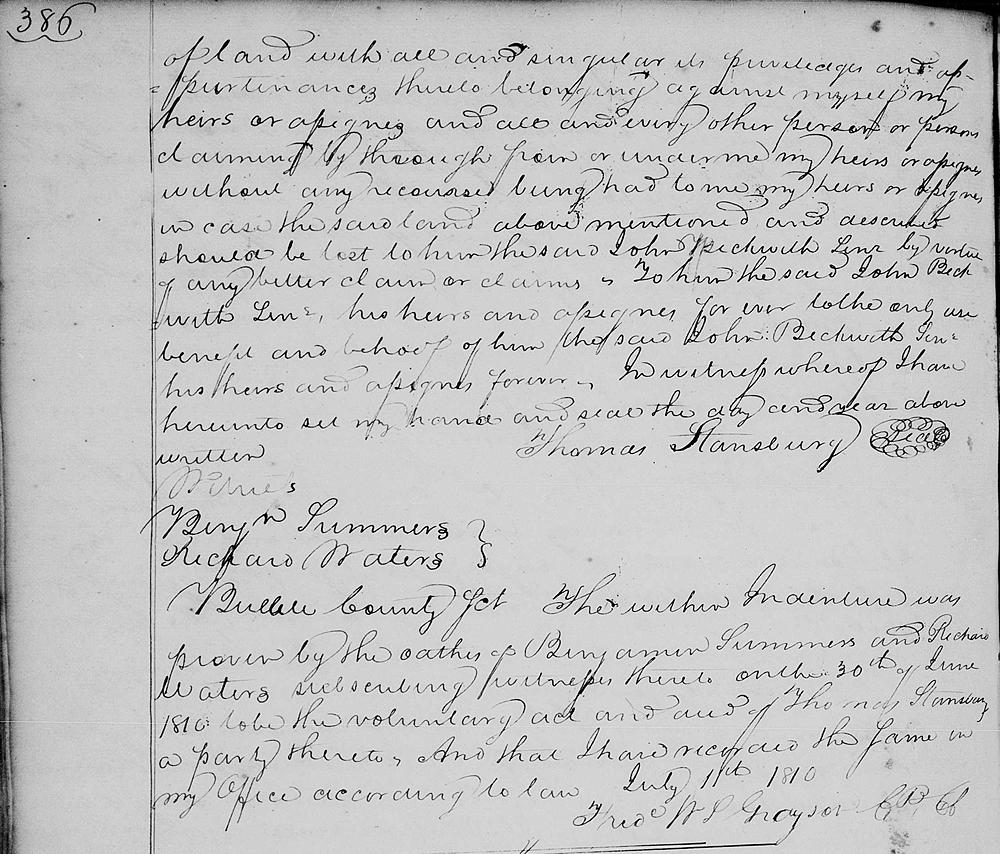 386
of land with all and singular its priviledges and ap-
purtinances thereto belonging against myself my
heirs or assignes and all and every other person or persons
claiming by through from or under me my heirs or assignes
without any recourse being had to me my heirs or assignes
in case the said land above mentioned and described
should be lost to him the said John Beckwith Senr by vertue
of any better claim or claims, To him the said John Beck
with Senr, his heirs and assignes for ever to the only use
benefit and behoof of him the said John Beckwith Senr
his heirs and assignes forever, In witness whereof I have
hereunto set my hand and seal the day and year above
written Thomas Stansbury Seal
Witness
Benjn Summers
Richard Waters
Bullitt County Sct The within Indenture was
proven by the oathes of Benjamin Summers and Richard
Waters subscribing witness thereto on the 30th of June
1810 to be the voluntary act and deed of Thomas Stansbury
a party thereto, And that I have recorded the same in
my Office according to law July 11th 1810
Fred W S Grayson